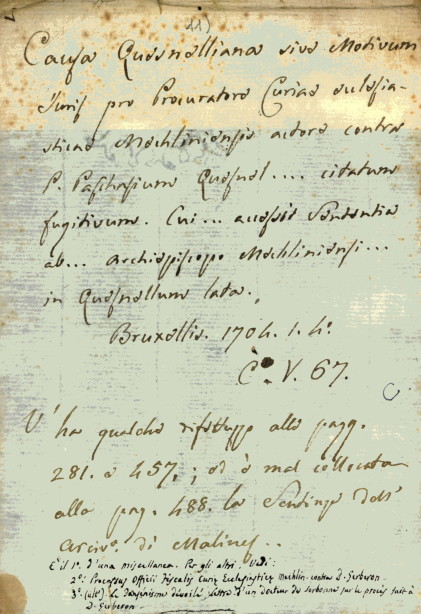 11)
Causa Quesnelliana sive Motivum
Juris pro Procuratore Curiae ecclesia-
sticae Mechliniensis actore contra
P. Paschasium Quesnel.... citatum
fugitivum. Cui... accessit Sententia
ab... Archiepiscopo Mechliniensi...
in Quesnellum lata.
Bruxellis. 1704. 1. 4º.
Cº. V. 67.
V'ha qualche rifless. alle pagg.
281. e 457.; ed è mal collocata
alla pag. 488. la Sentenza dell'
Arciv.º di Malines..
E' il 1º. d'una miscellanea. Per gli altri. Vedi:
2º: Processus Officii Fiscalis Curiae Ecclesiasticae Mechlin. contra D. Gerberon.
3º. Le Jansénisme dévoilé, lettre d'un docteur de Sorbonne sur le procès fait à
D. Gerberon.